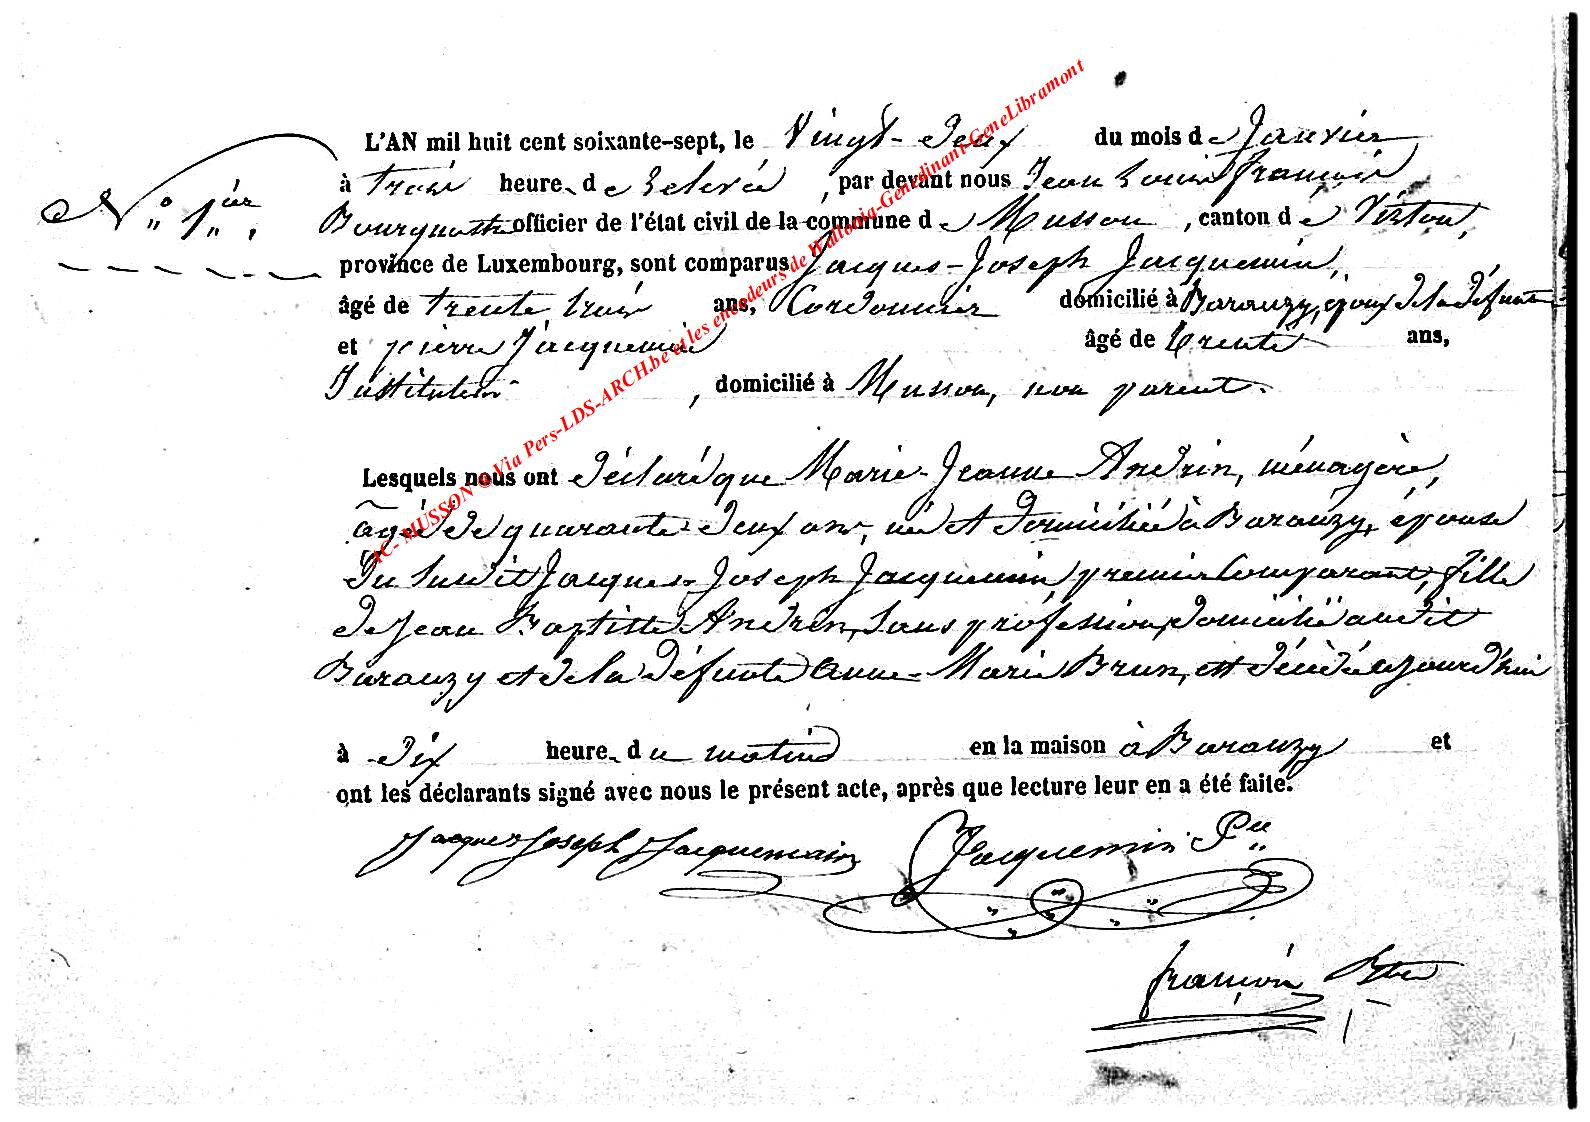 L'AN mil huit cent soixante-sept, le Vingt-Deux du mois de Janvier
à trois heures de Relevée, par devant nous Jean Louis françois
N° 1er.
officier de l'état civil de la commune de Musson, canton de Virton,
province de Luxembourg, sont comparus Jacques-Joseph Jacquemin,
âgé de trente trois ans, Cordonnier domicilié à Baranzy, époux de la défunte
et pierre Jacquemin âgé de trente ans,
Instituteur, domicilié à Musson, non parent.
Lesquels nous ont déclaré que Marie-Jeanne Andrin, ménagère,
âgée de quarante-deux ans, née et domiciliée à Baranzy, épouse
du susdit Jacques-Joseph Jacquemin, premier Comparant, fille
de Jean Baptiste Andrin, sans profession, domicilié audit
Baranzy et de la défunte Anne-Marie Brun, est décédée aujourd'hui
à dix heures du matin en la maison à Baranzy et
ont les déclarants signé avec nous le présent acte, après que lecture leur en a été faite.
Jacques Joseph Jacquemin Jacquemin Pre
françois
AC-MUSSON © Via Pers-LDS-ARCH.be et les encodeurs de Wallonia-Genedinant-GeneLibramont